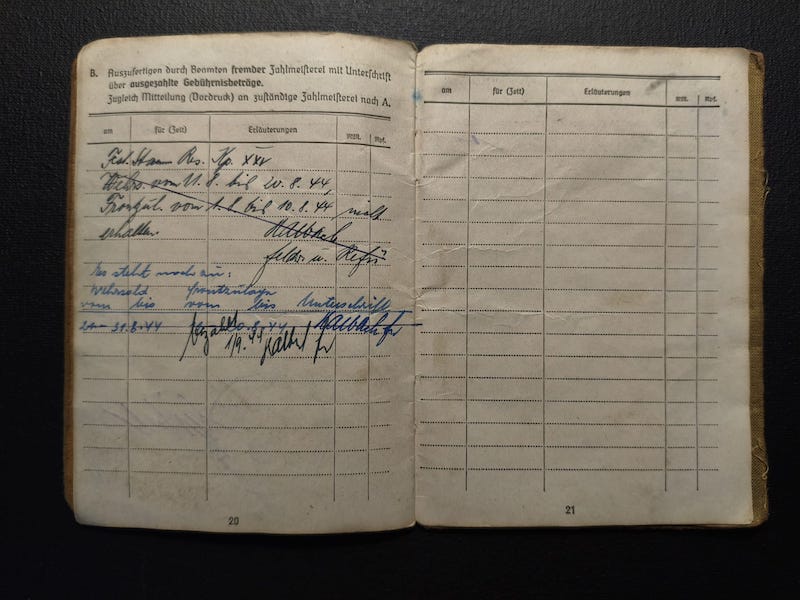 B. Auszufertigen durch Beamten fremder Zahlmeisterei mit Unterschrift
über ausgezahlte Gebührnisbeträge.
Zugleich Mitteilung (Vordruck) an zuständige Zahlmeisterei nach A.
am für (Zeit) Erläuterungen RM. Rpf.
Res. Kp. XXV
Wehrs. vom 11.8. bis 20.8.44,
Frontzul. vom 1.8. bis 10.8.44 nicht
erhalten.
Kalbach
Es steht noch zu:
Wehrsold Frontzulage
vom bis vom bis Unterschrift
21 – 31.8.44 8.44 Kalbach
bezahlt
1/9. 44
20
am für (Zeit) Erläuterungen RM. Rpf.
21